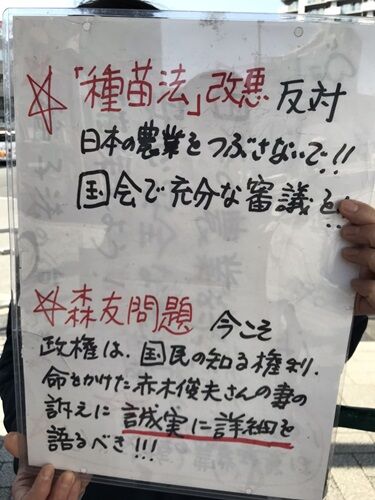 ☆「種苗法」改悪 反対
日本の農業をつぶさないで!!
国会で充分な審議を!!
☆森友問題 今こそ
政権は、国民の知る権利、
命をかけた赤木俊夫さんの妻の
訴えに 誠実に詳細を
語るべき!!!